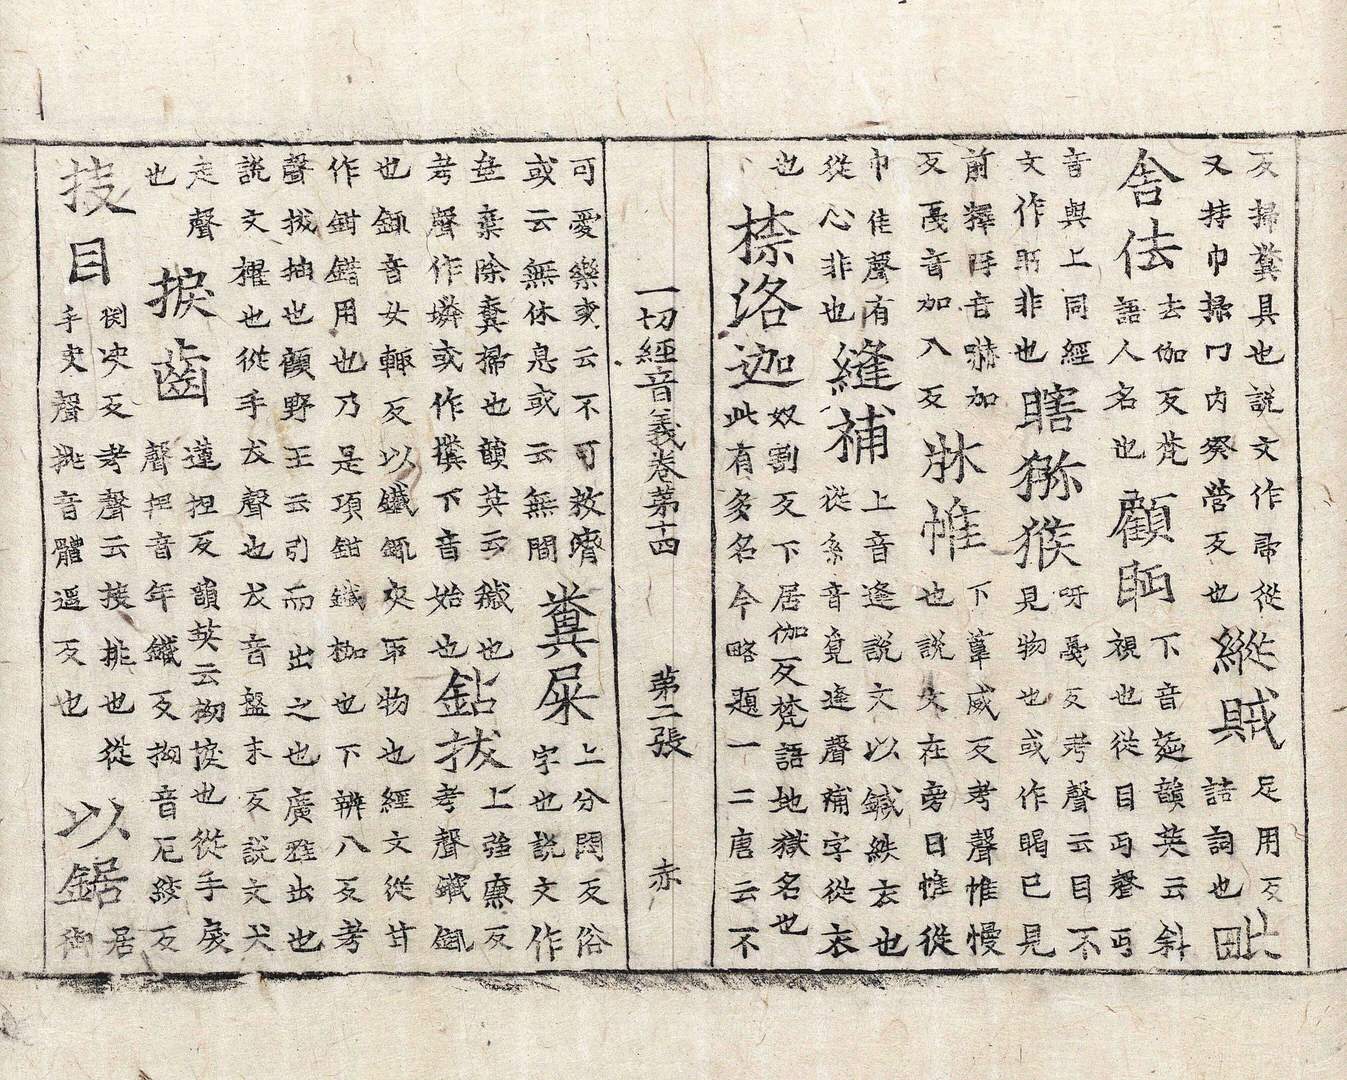 反掃糞具也説文作帚從
又持巾掃冂內癸營反也縱賊足用反
詰詞也毗
舍佉去伽反梵
語人名也顧眄下音麪韻英云斜
視也從目丏聲丏
音與上同經
文作眄非也瞎獼猴呀戞反考聲云目不
見物也或作暍已見
前釋呀音嚇加
反戞音加八反牀帷下葦威反考聲帷慢
也説文在旁曰帷從
巾隹聲有
從心非也縫補上音逢説文以鍼紩衣也
從糸音覓逢聲補字從衣
也㮈洛迦奴割反下居伽反梵語地獄名也
此有多名今略題一二唐云不
一切經音義卷第十四 第二張 赤
可愛樂或云不可救濟
或云無休息或云無間糞屎上分問反俗
字也説文作
棄除糞掃也韻英云穢也
考聲作或作下音始也鉆拔上強廉反
考聲鐵鑷
也鑷音女輒反以鐵鑷夾取物也經文從甘
作鉗錯用也乃是項鉗鐵枷也下辨八反考
聲拔抽也顧野王云引而出之也廣雅出也
説文櫂也從手犮聲也犮音盤末反説文犬
走聲
也捩齒蓮捏反韻英云拗捩也從手戾
聲捏音年鐵反拗音厄絞反
抉目決反考聲云抉挑也從
手夬聲挑音體遥反也以鋸居
御